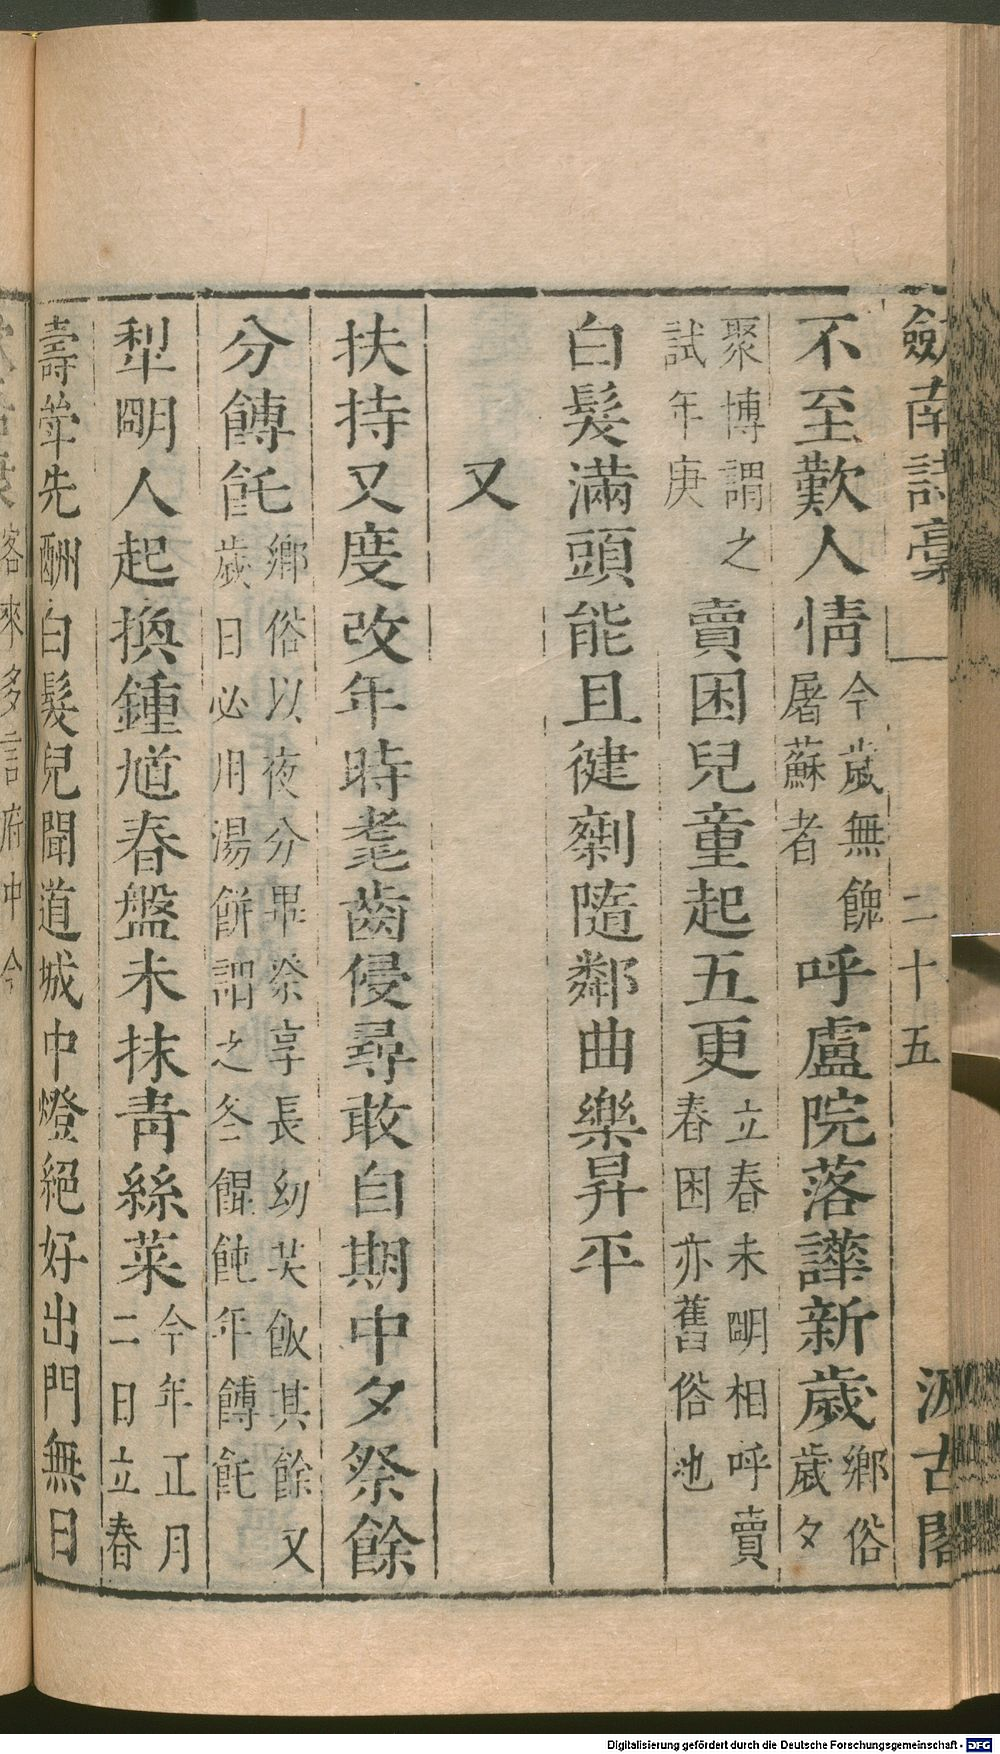 劒南詩稾
二十五
汲古閣
不至歎人情今歲無餽屠蘇者呼盧院落譁新歲鄉俗歲夕
聚博謂之試年庚賣困兒童起五更立春未明相呼賣春困亦舊俗也
白髮滿頭能且健剩隨鄰曲樂昇平
又
扶持又度改年時耄齒侵尋敢自期中夕祭餘
分餺飥鄉俗以夜分畢祭享長幼共飯其餘又歲日必用湯餅謂之冬餛飩年餺飥
犁明人起換鍾馗春盤未抹青絲菜今年正月二日立春
壽斚先酬白髮兒聞道城中燈絕好出門無日
客來多言府中今
Digitalisierung gefördert durch die Deutsche Forschungsgemeinschaft - DFG